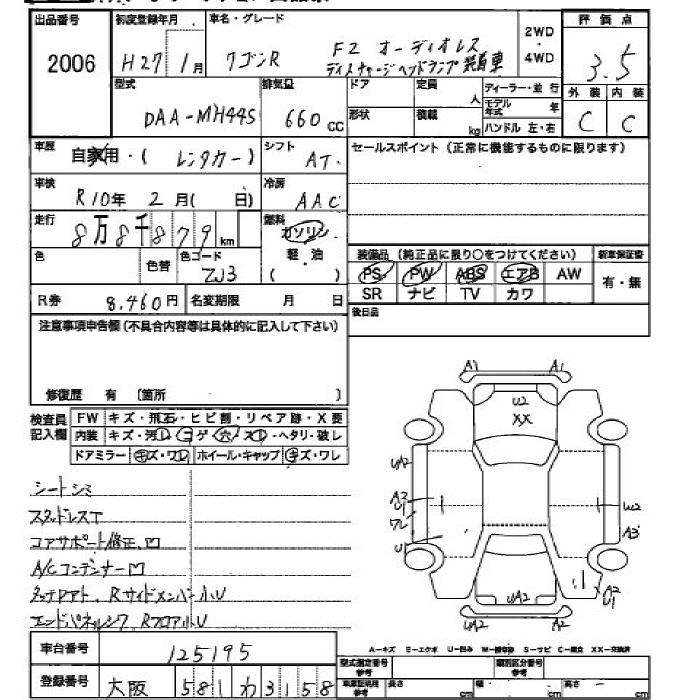 出品番号 初度登録年月 車名・グレード 2WD・4WD 評価点
2006 H27年1月 ワゴンR FZ オーディオレス 3.5
ディスチャージヘッドランプ装着車
型式 排気量 ドア 定員 人 ディーラー・並行 外装 内装
DAA-MH44S 660cc 形状 積載 kg モデル年式 年 C C
ハンドル 左・右
車歴 自家用・( レンタカー ) シフト AT. セールスポイント (正常に機能するものに限ります)
車検 R10年 2月( 日) 冷房 AAC
走行 8万8千879km 燃料 ガソリン
軽・油
( )
色 色替 色コード ZJ3
装備品 (純正品に限り○をつけてください) 新車保証書
PS PW ABS エアB AW 有・無
SR ナビ TV カワ
R券 8.460円 名変期限 月 日 後日品
注意事項申告欄(不具合内容等は具体的に記入して下さい)
修復歴 有 〔箇所 〕
検査員記入欄 FW キズ・飛石・ヒビ割・リペア跡・X要
内装 キズ・汚レ・コゲ・穴・スレ・ヘタリ・破レ
ドアミラー キズ・ワレ ホイール・キャップ キズ・ワレ
シートシミ
スタッドレスT
コアサポート修正、凹
A/Cコンデンサー凹
Rサイドメンバー小U
エンドパネルシワ、Rフロア小U
A1 A1
U2
XX
UA2
A2
U1
ワレ
U1
U2
A3
A2
U1
UA2
UA2 A2
A-キズ E-エクボ U-凹み W-補修跡 S-サビ C-腐食 XX-交換済
車台番号 125195
登録番号 大阪 581 わ 3158
型式指定番号 参考 類別区分番号 参考
車庫証明用 参考 長さ cm 幅 cm 高さ cm